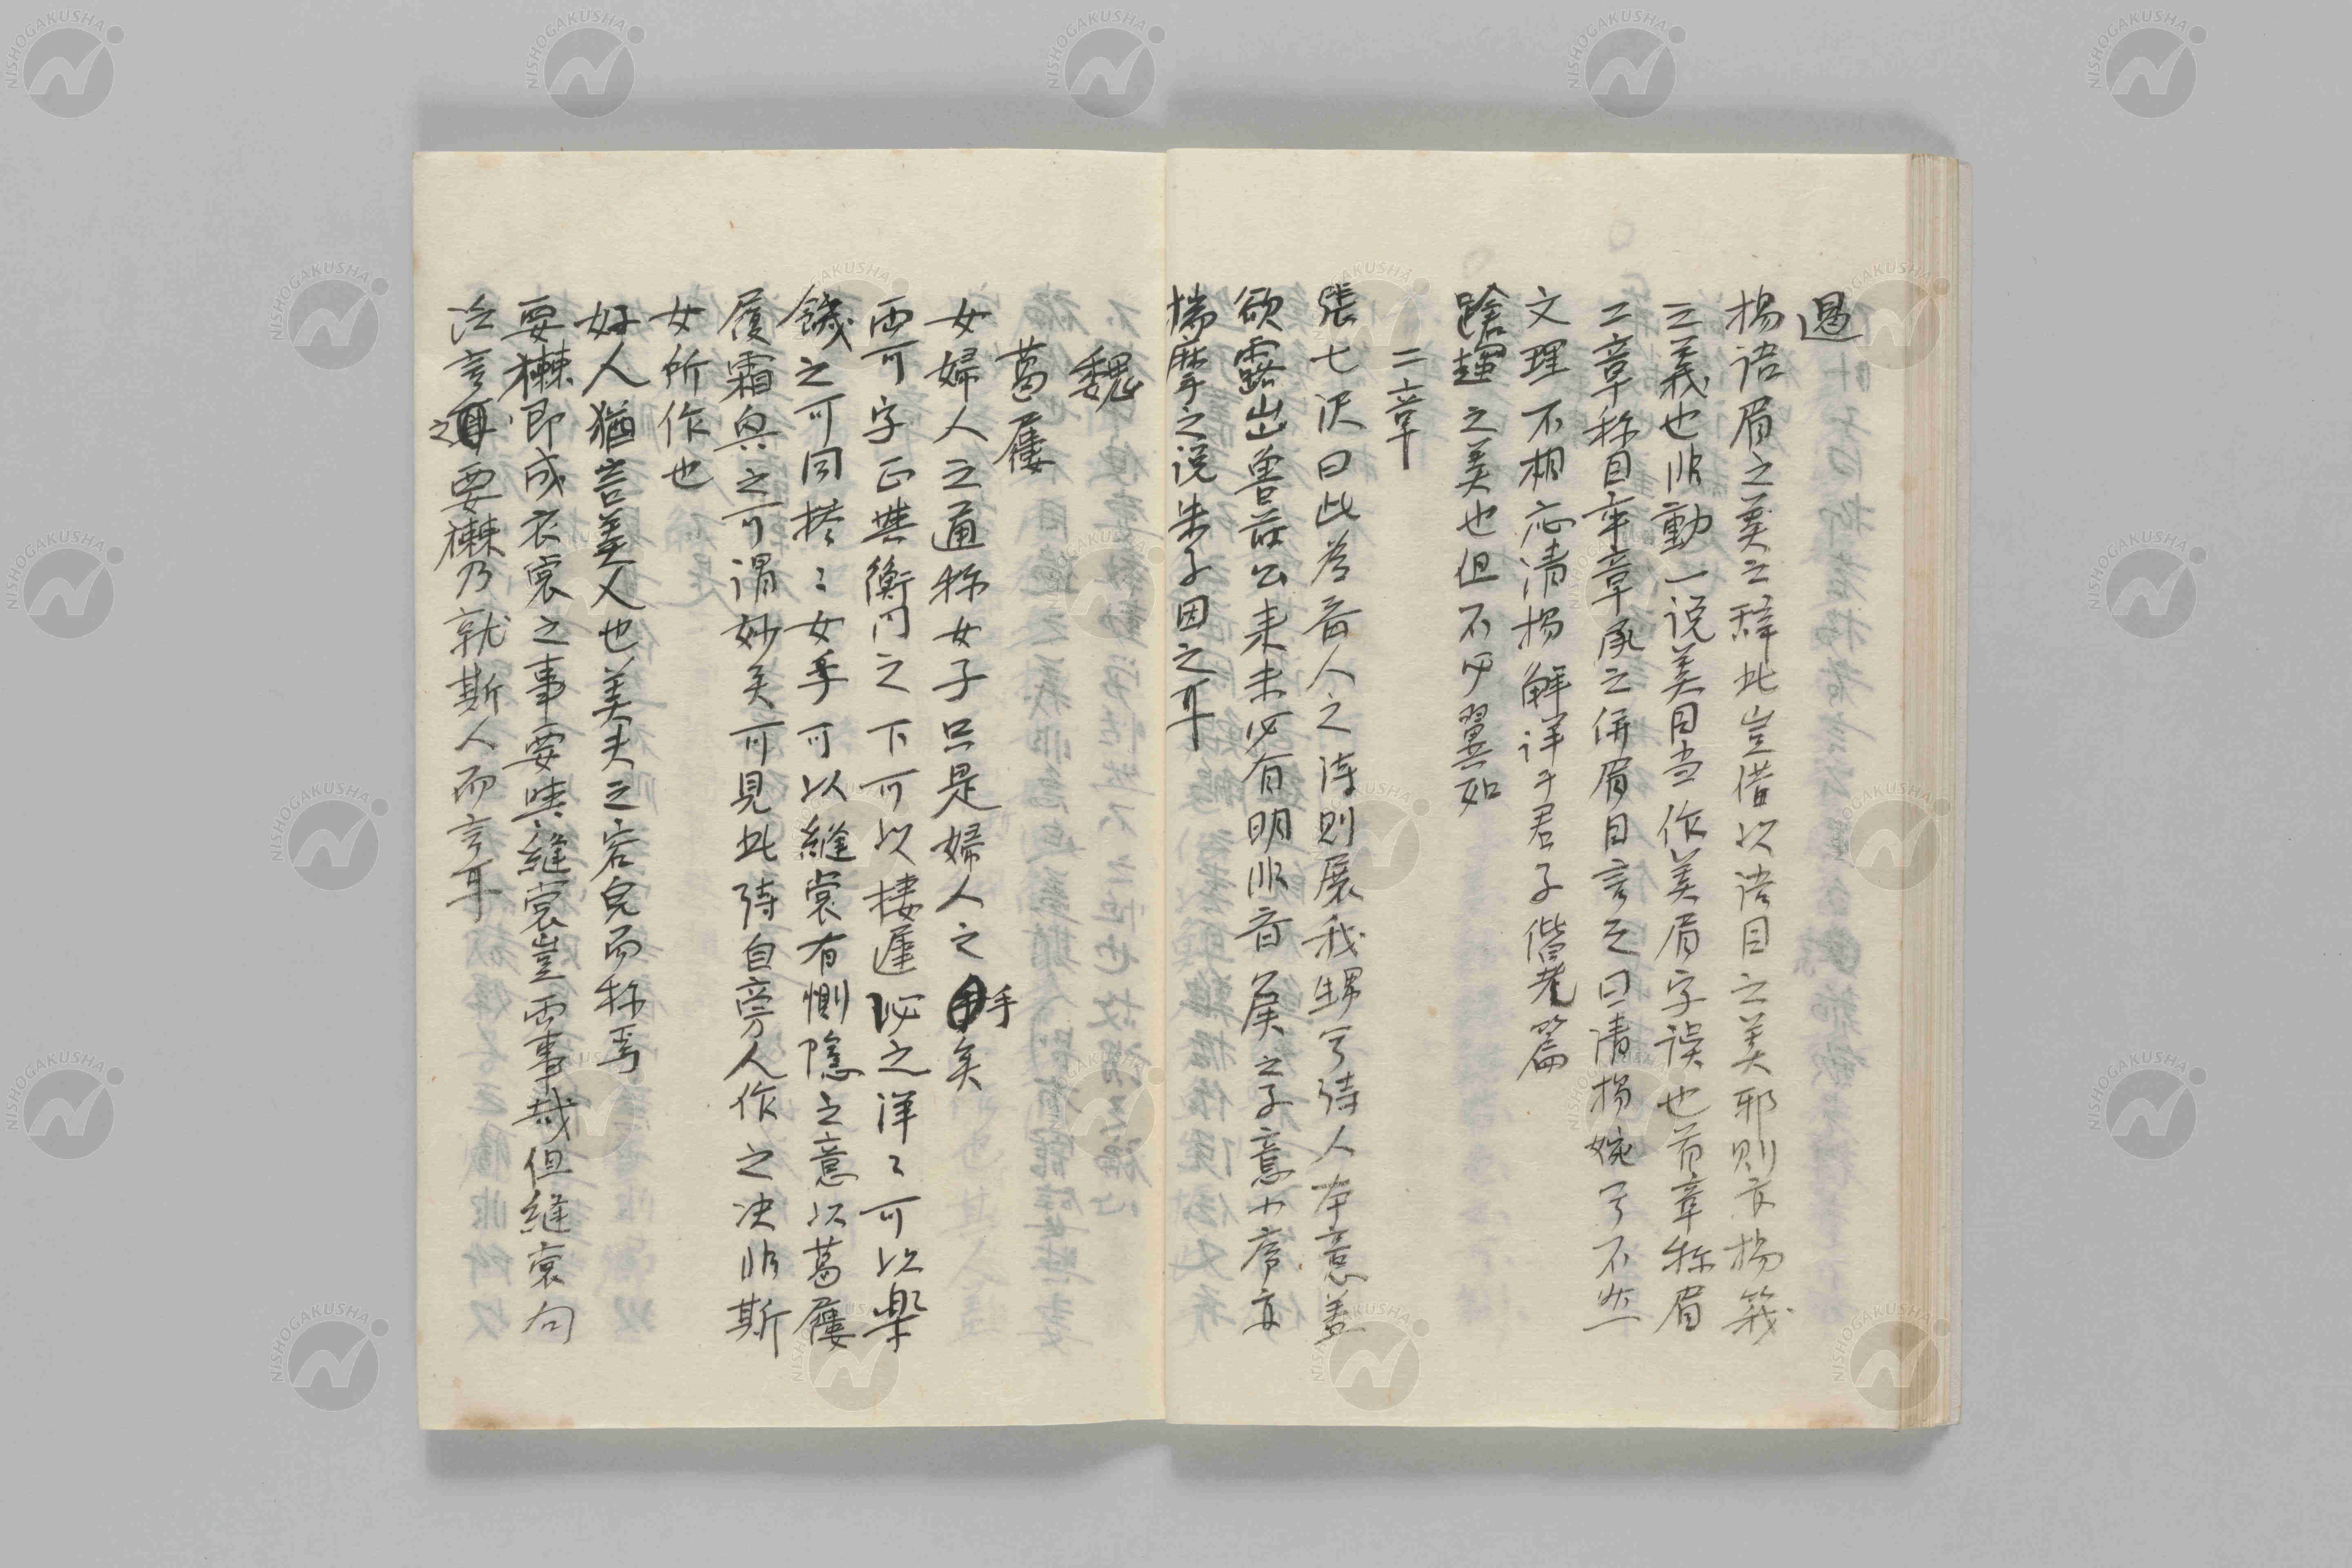 過
揚語眉之美之辞此豈借以語目之美耶則亦揚箴
之義也非動一説美目当作美眉字誤也首章称眉
二章称目卒章承之併眉目言之曰清揚婉兮不然
文理不相応清揚解詳于君子偕老篇
蹌趯之美也但不必翼如
二章
張七沢曰此為斉人之詩則展我甥兮詩人本意蓋
欲露出魯荘公来未必有明非斉侯之子意小序亦
揣摩之説朱子因之耳
魏
葛屨
女婦人之通称女子只是婦人之手矣
両可字正与衡門之下可以棲遅泌之洋〻可以楽
饑之可同摻〻女手可以縫裳有惻隠之意以葛屨
履霜与之可謂妙矣可見此詩自旁人作之決非斯
女所作也
好人猶言美人也美夫之容皃而称焉
要襋即成衣裳之事要与縫裳豈両事哉但縫裳句
泛言之要襋乃就斯人而言耳
NISHOGAKUSHA